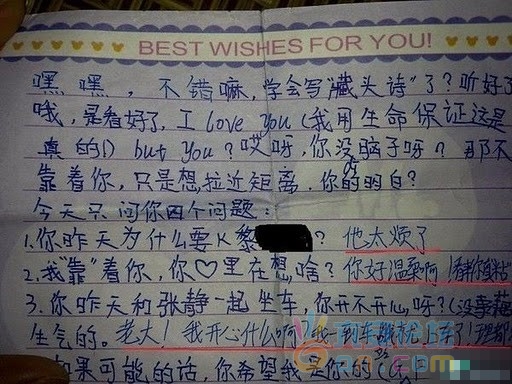 BEST WISHES FOR YOU!
嘿嘿，不错嘛，学会写"藏头诗"了？听好了
哦，是看好了，I love you（我用生命保证这是
真的！）but you？哎呀，你没脑子呀？那不
靠着你，只是想拉近距离，你的明白？
今天只问你四个问题：
1.你昨天为什么要K黎？ 他太烦了
2.我"靠"着你，你♡里在想啥？你好温柔啊！
3.你昨天和张静一起坐车，你开不开心呀？（没事
生气的。老大！我开心什么啊？我一
如果可能的话，你希望我是你的